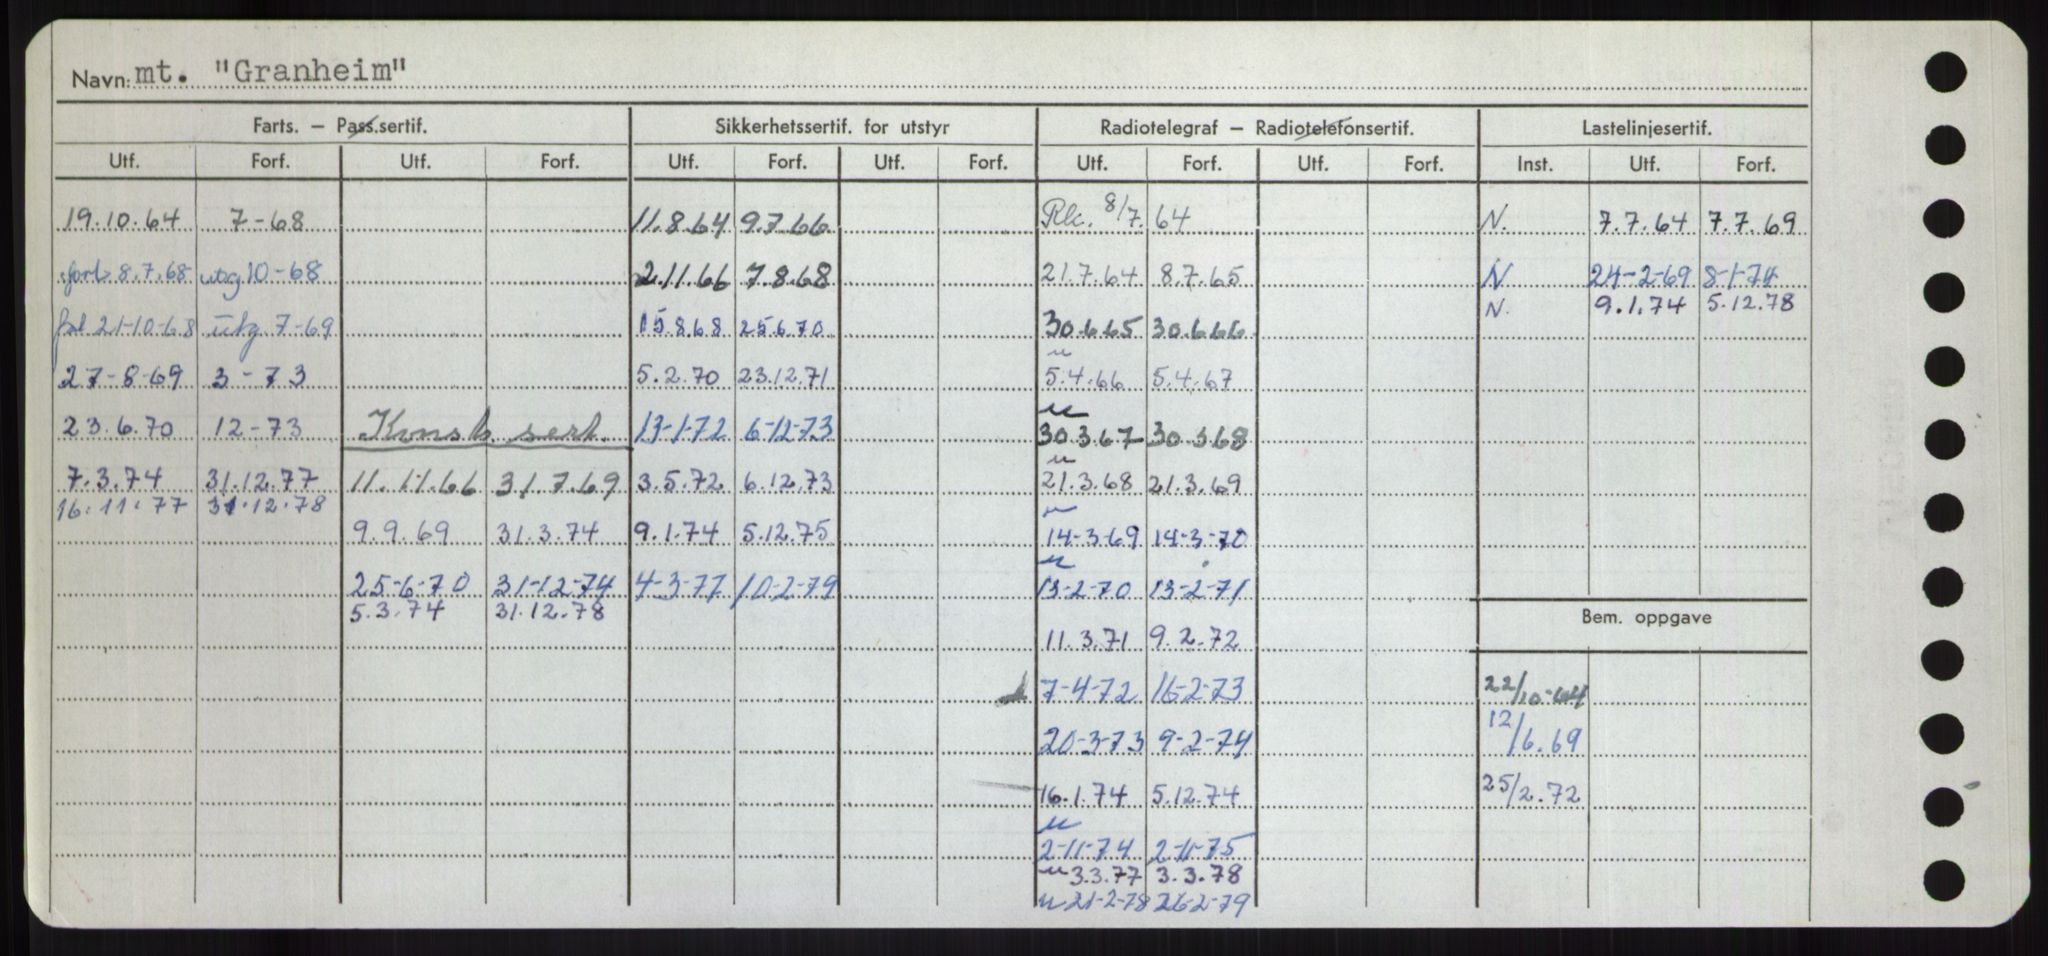 Navn: mt. "Granheim"
Farts. – Pass.sertif. Sikkerhetssertif. for utstyr Radiotelegraf – Radiotelefonsertif. Lastelinjesertif.
Utf. Forf. Utf. Forf. Utf. Forf. Utf. Forf. Utf. Forf. Utf. Forf. Inst. Utf. Forf.
19.10.64 7-68 11.8.64 9.7.66 Rk. 8/7.64 N. 7.7.64 7.7.69
forl. 8.7.68 utg 10-68 2.11.66 7.8.68 21.7.64 8.7.65 N 24-2-69 8-1-74
N. 9.1.74 5.12.78
21-10-68 utg. 7-69 15.8.68 25.6.70 30.6.65 30.6.66
27-8-69 3-73 5.2.70 23.12.71 u 5.4.66 5.4.67
23.6.70 12-73 Konstr. sert. 13-1-72 6-12-73 u 30.3.67 30.3.68
7.3.74 31.12.77 11.11.66 31.7.69 3.5.72 6.12.73 u 21.3.68 21.3.69
16.11.77 31.12.78
9.9.69 31.3.74 9.1.74 5.12.75 u 14-3-69 14-3-70
25-6-70 31-12-74 4-3-77 10-2-79 u 13-2-70 13-2-71
5.3.74 31.12.78
Bem. oppgave
11.3.71 9.2.72
7-4-72 16-2-73 22/10-64
20-3-73 9-2-74 12/6.69
16.1.74 5.12.74 25/2.72
u 2-11-74 2-11-75
u 3.3.77 3.3.78
u 21-2-78 26-2-79